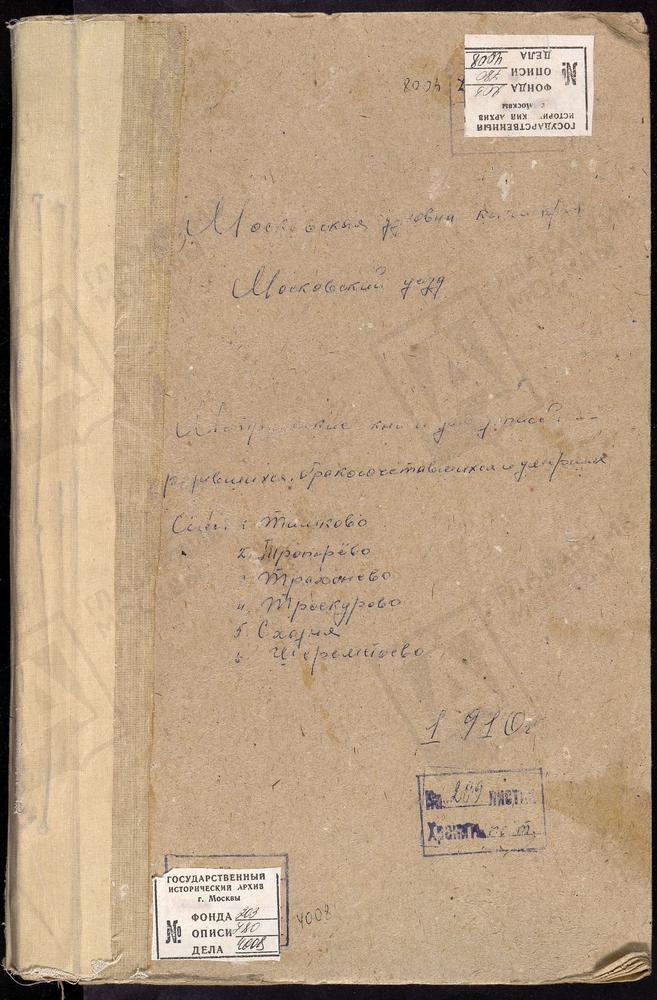 ГОСУДАРСТВЕННЫЙ
ИСТОРИЧЕСКИЙ АРХИВ
г. Москвы
№
ФОНДА 203
ОПИСИ 780
ДЕЛА 4008
4008
Московская духовная
Московский уезд
Метрические книги
родившихся, бракосочетавшихся и умерших
Сёла: 1. Тимково
2. Тропарёво
3. Траханеево
4. Троекурово
5. Сходня
6. Шереметьево
1910г
289 листов
ГОСУДАРСТВЕННЫЙ
ИСТОРИЧЕСКИЙ АРХИВ
г. Москвы
№
ФОНДА 203
ОПИСИ 780
ДЕЛА 4008
4008